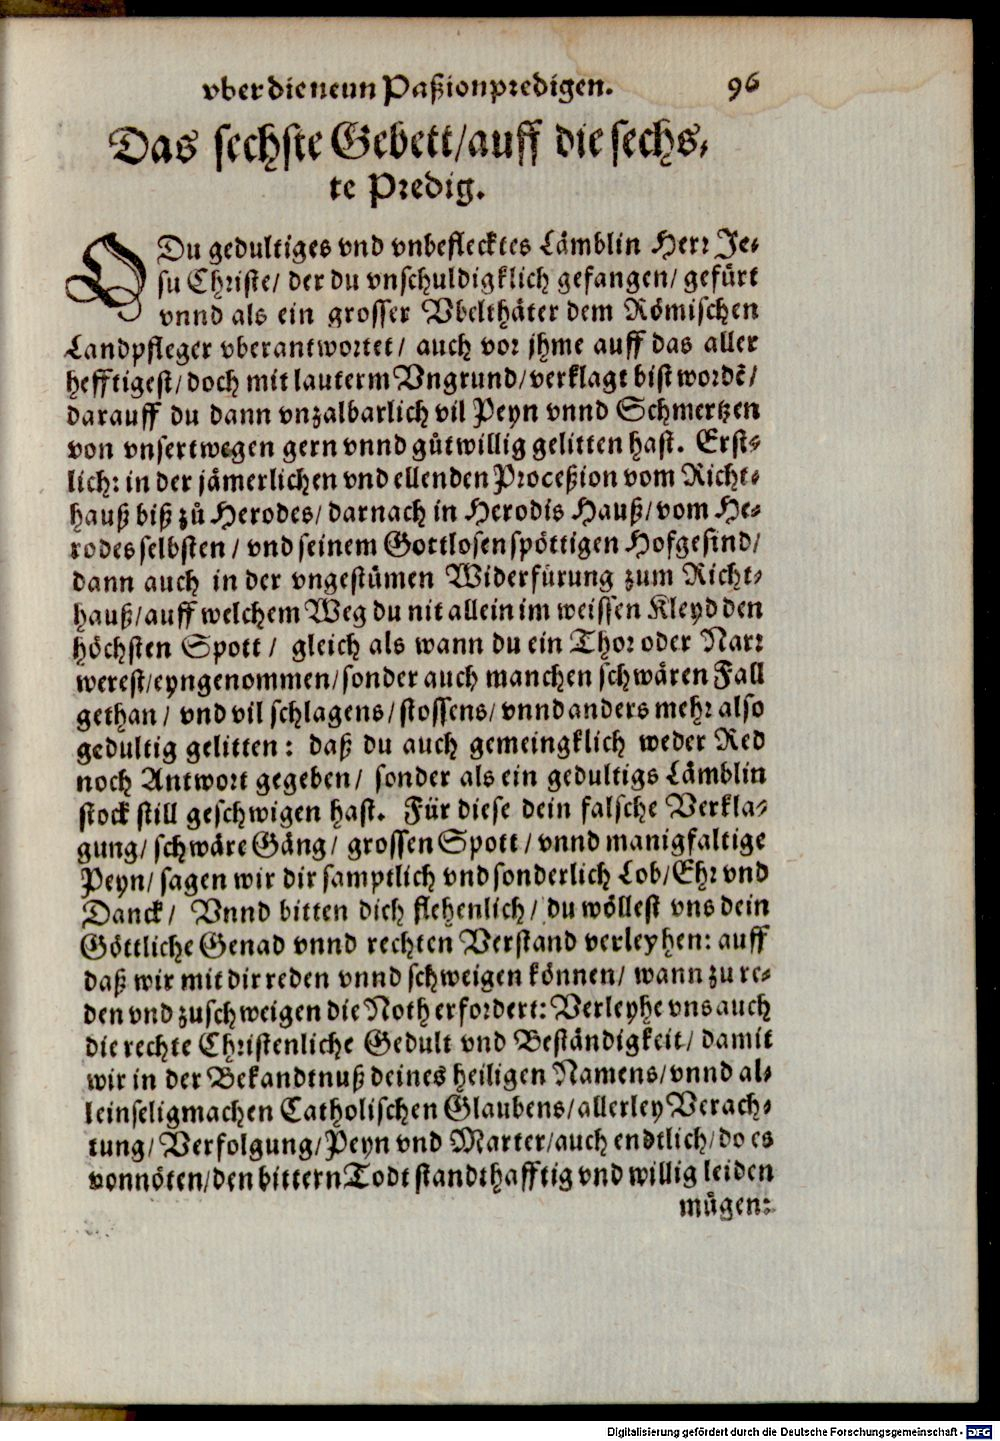 vber die neun Paßionpredigen. 96
Das sechste Gebett/auff die sechs-
te Predig.
O Du gedultiges vnd vnbeflecktes Lämblin Herr Je-
su Christe/ der du vnschuldigklich gefangen/ gefürt
vnnd als ein grosser Vbelthäter dem Römischen
Landpfleger vberantwortet/ auch vor jhme auff das aller
hefftigest/ doch mit lauterm Vngrund/ verklagt bist wordē/
darauff du dann vnzalbarlich vil Peyn vnnd Schmertzen
von vnsertwegen gern vnnd gůtwillig gelitten hast. Erst-
lich: in der jämerlichen vnd ellenden Proceßion vom Richt-
hauß biß zů Herodes/ darnach in Herodis Hauß/ vom He-
rodes selbsten/ vnd seinem Gottlosen spöttigen Hofgesind/
dann auch in der vngestümen Widerfürung zum Richt-
hauß/ auff welchem Weg du nit allein im weissen Kleyd den
höchsten Spott/ gleich als wann du ein Thor oder Narr
werest/ eyngenommen/ sonder auch manchen schwären Fall
gethan/ vnd vil schlagens/ stossens/ vnnd anders mehr also
gedultig gelitten: daß du auch gemeingklich weder Red
noch Antwort gegeben/ sonder als ein gedultigs Lämblin
stock still geschwigen hast. Für diese dein falsche Verkla-
gung/ schwäre Gäng/ grossen Spott/ vnnd manigfaltige
Peyn/ sagen wir dir samptlich vnd sonderlich Lob/ Ehr vnd
Danck/ Vnnd bitten dich flehenlich/ du wöllest vns dein
Göttliche Genad vnnd rechten Verstand verleyhen: auff
daß wir mit dir reden vnnd schweigen können/ wann zu re-
den vnd zuschweigen die Noth erfordert: Verleyhe vns auch
die rechte Christenliche Gedult vnd Beständigkeit/ damit
wir in der Bekandtnuß deines heiligen Namens/ vnnd al-
leinseligmachen Catholischen Glaubens/ allerley Verach-
tung/ Verfolgung/ Peyn vnd Marter/ auch endtlich/ do es
vonnöten/ den bittern Todt standthafftig vnd willig leiden
mügen:
Digitalisierung gefördert durch die Deutsche Forschungsgemeinschaft - DFG